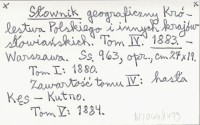 Słownik geograficzny Kró-
lestwa Polskiego i innych krajów
słowiańskich. Tom IV. 1883. -
Warszawa. Ss. 963, opr., cm 27 x 19.
Tom I: 1880.
Zawartość tomu IV: hasła
Kęs - Kutno.
Tom V: 1884.